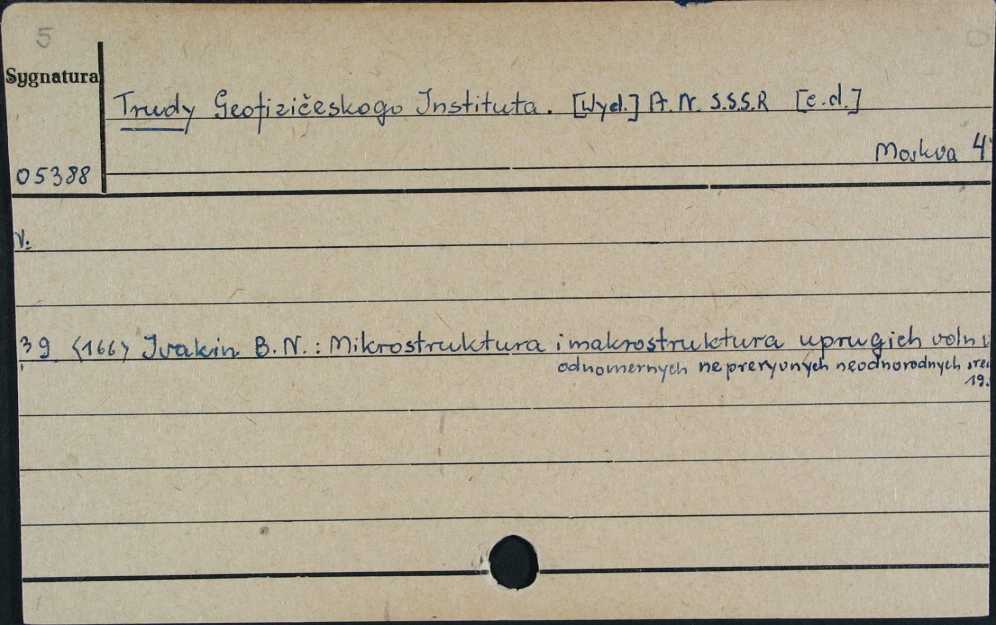 5
Sygnatura
Trudy Geofizičeskogo Instituta. [Wyd.] A. N. S.S.S.R [c.d.]
Moskva 4
05388
V.
39 <166> Ivakin B. N. : Mikrostruktura i makrostruktura uprugich voln v
odnomernych nepreryvnych neodnorodnych sred
19.